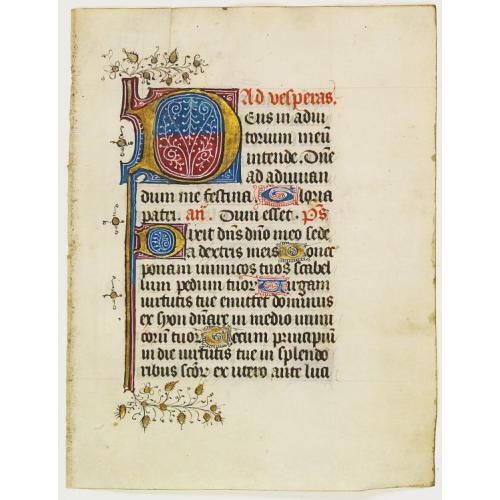 Ad vesperas.
Deus in adiu
torium meū
intende. Dn̄e
ad adiuuan
dum me festina Gloria
patri. an̄. Dum esset. Ps̄
Dixit dn̄s dn̄o meo sede
a dextris meis Donec
ponam inimicos tuos scabel
lum pedum tuoꝝ Uirgam
uirtutis tue emittet dominus
ex syon dn̄are in medio inimi
corū tuoꝝ Tecum principiū
in die uirtutis tue in splendo
ribus sc̄oꝝ ex utero ante luci